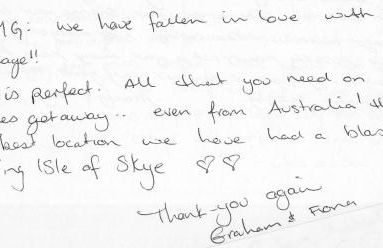 MG: we have fallen in love with
age!!
is perfect. All that you need on
es getaway.. even from Australia!
best location we have had a blas
ing Isle of Skye ♡♡
Thank-you again
Graham & Fiona